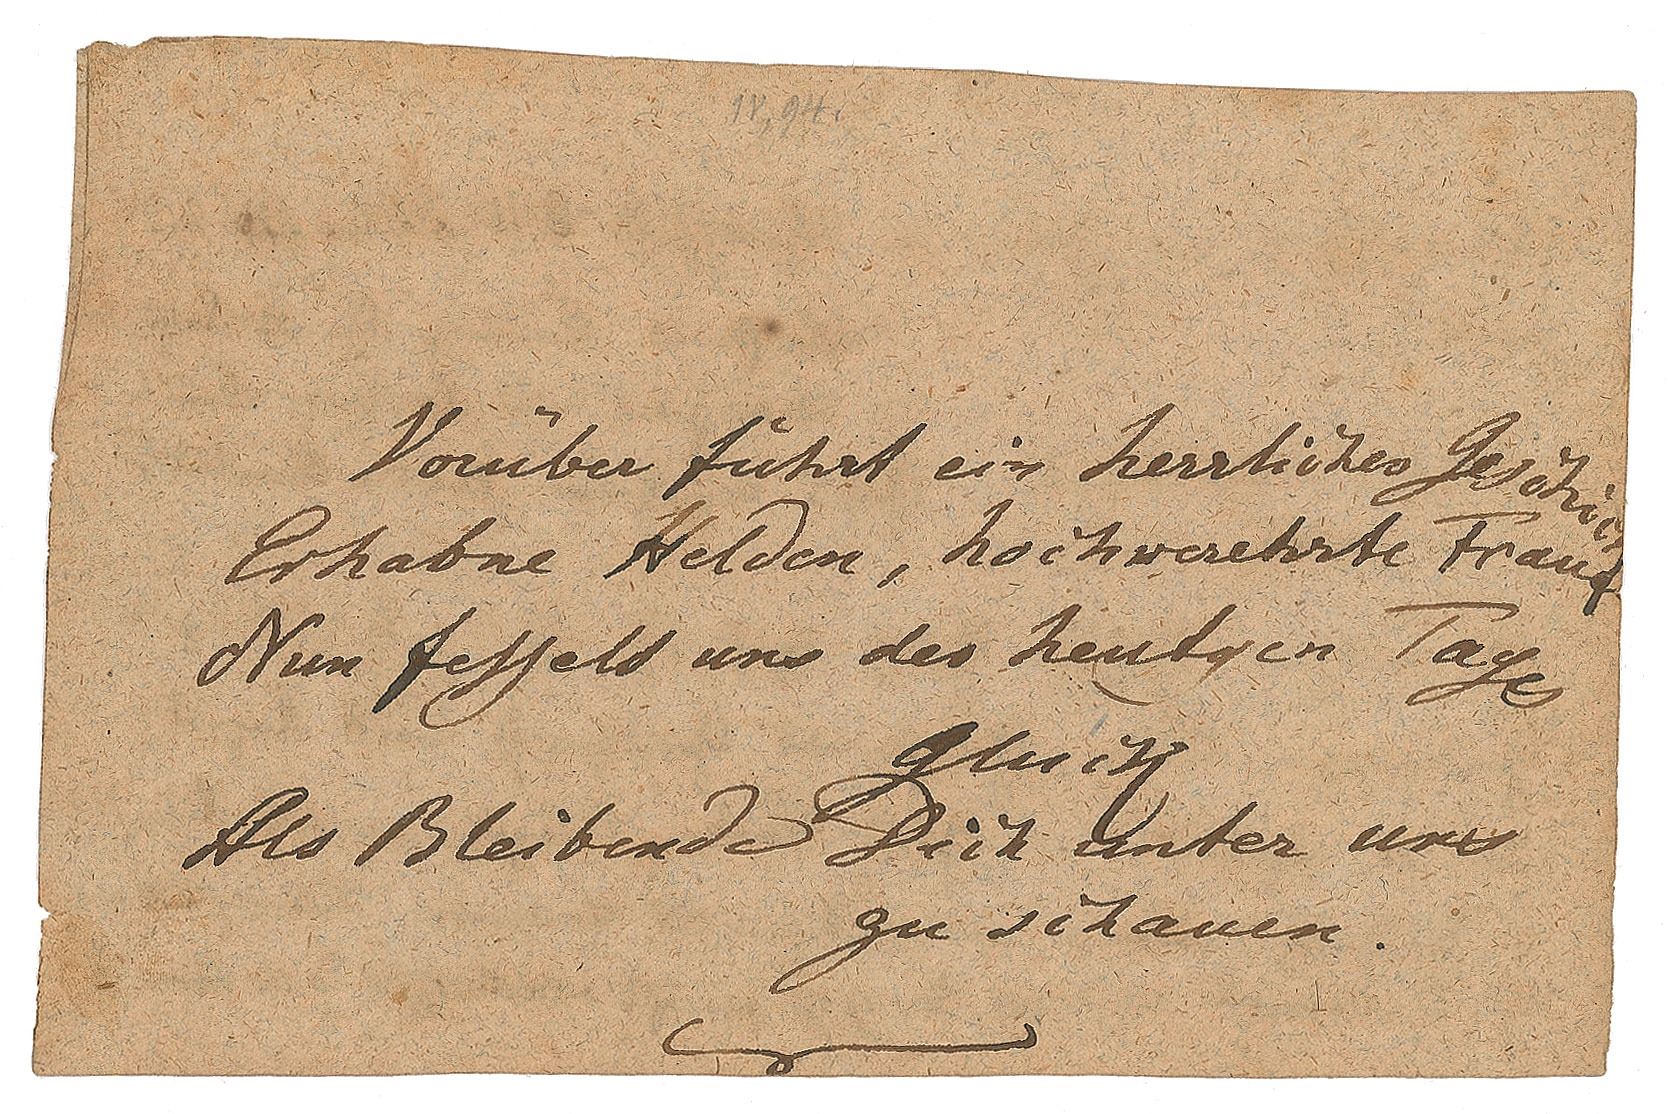 IV, 94.
Vorüber führt ein herrliches Geschick
Erhabne Helden, hochverehrte Frauen
Nun fesselt uns des heutgen Tages
Glück
Als Bleibende Dich unter uns
zu schauen.